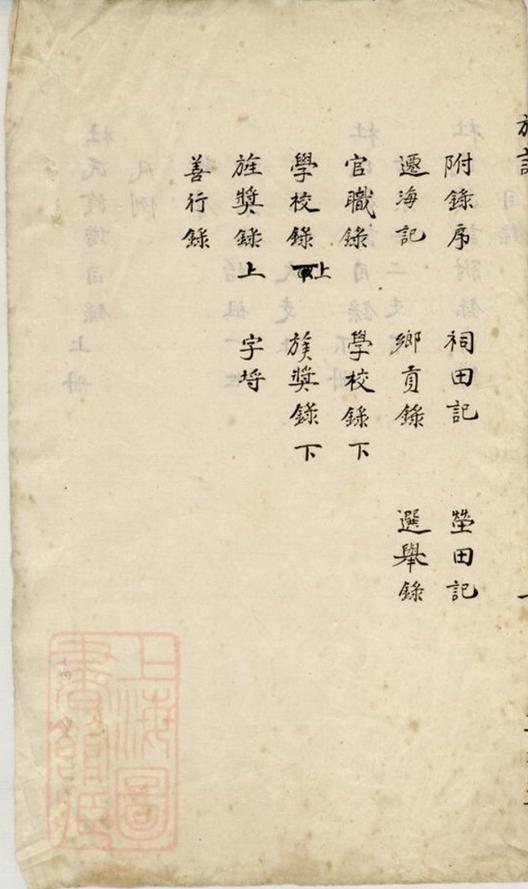 附錄序 祠田記 塋田記
遷海記 鄉貢錄 選舉錄
官職錄 學校錄下
學校錄上 旌獎錄下
旌獎錄上 字塆
善行錄
上海圖
書館藏